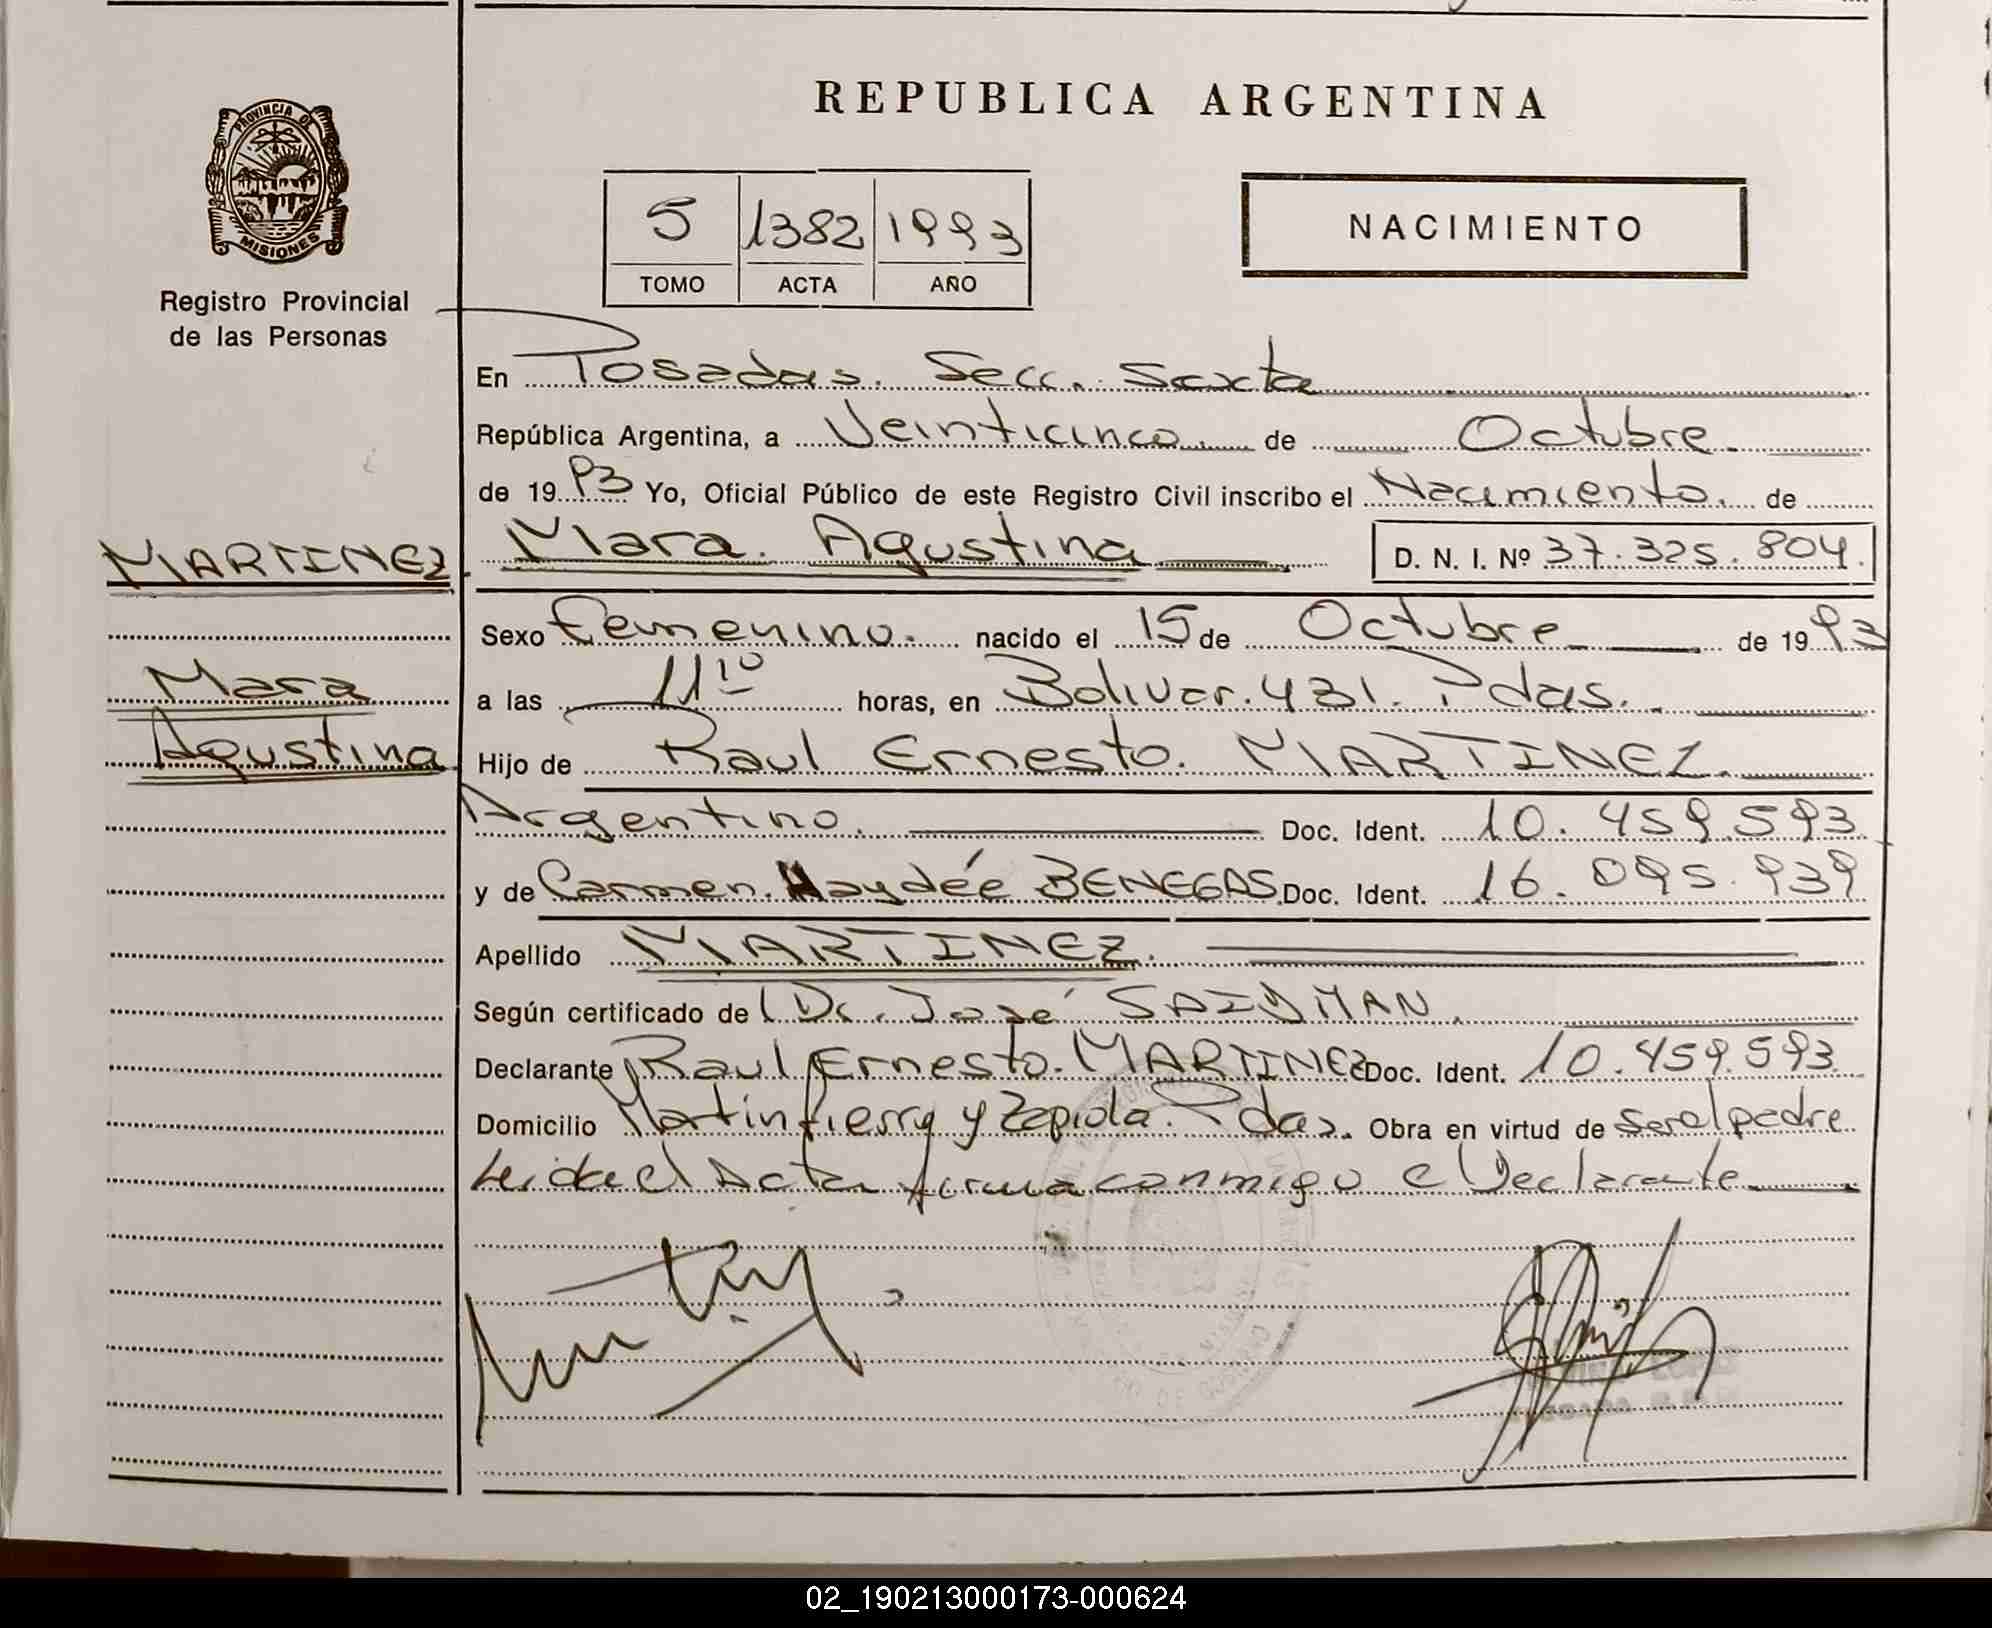 REPUBLICA ARGENTINA
PROVINCIA DE
MISIONES
Registro Provincial
de las Personas
5 1382 1993
TOMO ACTA AÑO
NACIMIENTO
En Posadas. Secc. Sexta
República Argentina, a Veinticinco de Octubre
de 1993 Yo, Oficial Público de este Registro Civil inscribo el Nacimiento. de
MARTINEZ Mara Agustina D. N. I. Nº 37.325.804.
Sexo Femenino. nacido el 15 de Octubre de 1993
Mara a las 11 10 horas, en Bolivar. 431. Pdas.
Agustina Hijo de Raul Ernesto. MARTINEZ.
Argentino. Doc. Ident. 10.459.593
y de Carmen Haydée BENEGAS Doc. Ident. 16.095.939
Apellido MARTINEZ.
Según certificado de Dr. José
Declarante Raul Ernesto. MARTINEZ Doc. Ident. 10.459.593
Domicilio Martin fierro y Zapiola. Pdas. Obra en virtud de ser el padre
Leida el Acta firma conmigo el Declarante
02_190213000173-000624